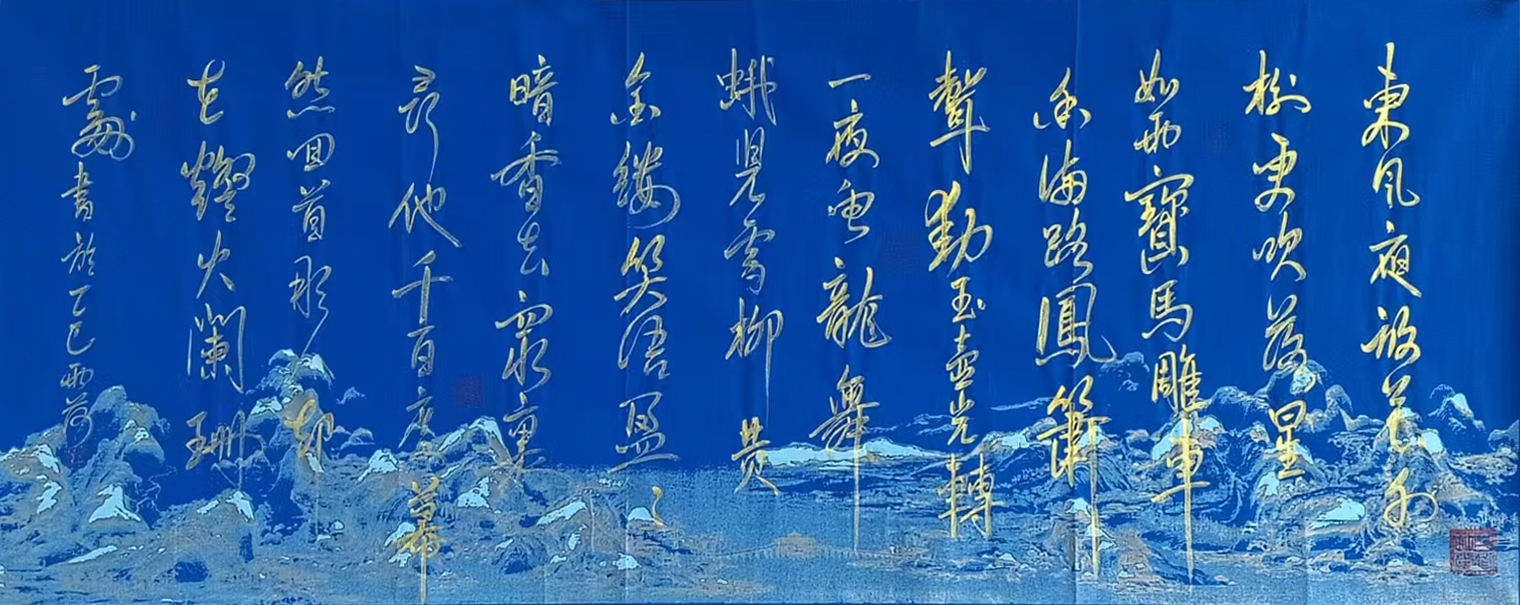 東風夜放花
樹更吹落星
如雨寶馬雕車
香滿路鳳簫
聲動玉壺光轉
一夜魚龍舞
蛾兒雪柳黃
金縷笑語盈々
暗香去眾裏
尋他千百度驀
然回首那卻
在燈火闌珊
處書於乙巳雨荷